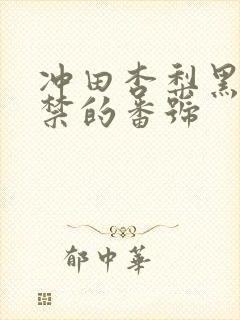 冲田杏梨黑
禁的番號
郁中華